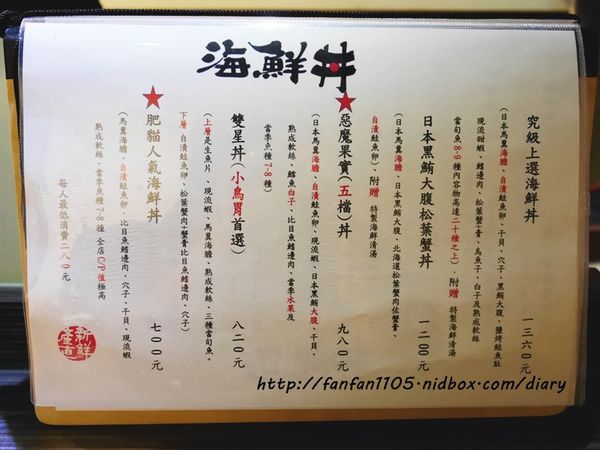 海鮮丼
究級上選海鮮丼
一三六〇元
(日本馬翼海膽、自漬鮭魚卵、干貝、穴子、黑鮪大腹、鹽烤鮭魚肚
現流甜蝦、鰭邊肉、松葉蟹+膏、烏魚子、白子及熟成軟絲
當旬魚8-9種內容物高達二十種之上)、附贈 特製海鮮清湯
日本黑鮪大腹松葉蟹丼
一二〇〇元
(日本馬翼海膽、日本黑鮪大腹、北海道松葉蟹肉佐蟹膏、
自漬鮭魚卵)、附贈 特製海鮮清湯
惡魔果實(五檔)丼
九八〇元
(日本馬翼海膽、自漬鮭魚卵、現流蝦、日本黑鮪大腹、干貝、
熟成軟絲、鱈魚白子、比目魚鰭邊肉、當季水果及
當季魚種7-8種)
雙星丼(小鳥胃首選)
八二〇元
(上層是生魚片、現流蝦、馬翼海膽、熟成軟絲、三種當旬魚。
下層 自漬鮭魚卵、松葉蟹肉+蟹膏比目魚鰭邊肉、穴子)
肥貓人氣海鮮丼
七〇〇元
(馬翼海膽、自漬鮭魚卵、比目魚鰭邊肉、穴子、干貝、現流蝦
熟成軟絲、當季魚種7-8種 全店CP值極高
每人最低消費二八〇元
新鮮產直
http://fanfan1105.nidbox.com/diary